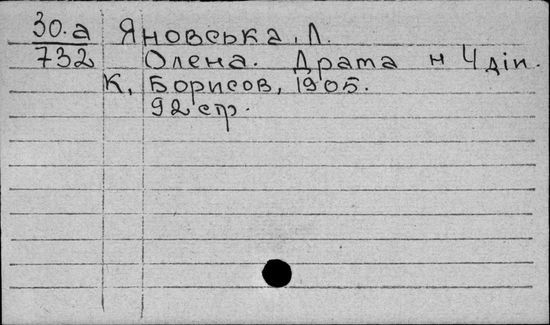 30.а Яновська, Л.
732 Олена. Драта н 4 дії.
К, Борисов, 1905.
92 стр.